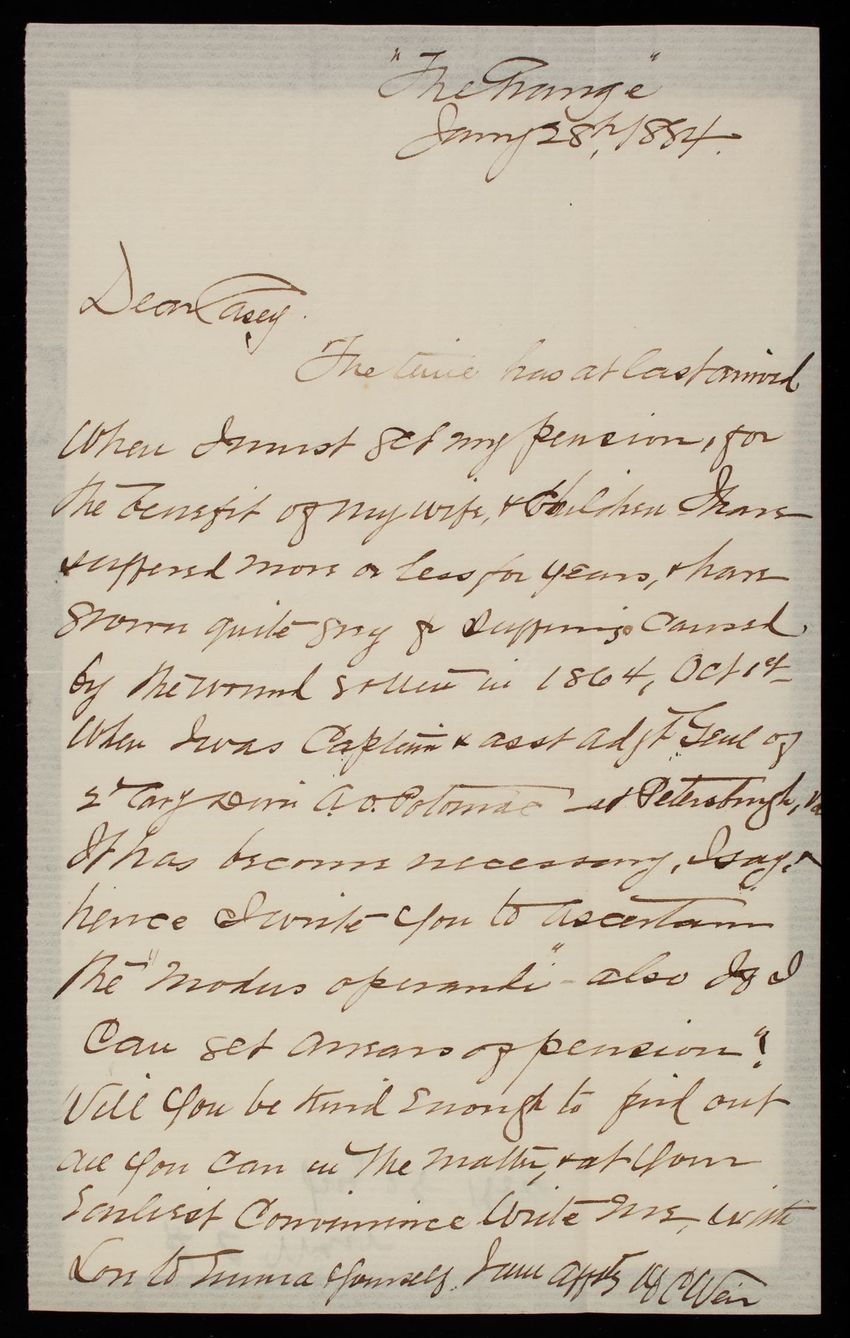 "The Grange"
Jany 28th, 1884.
Dear Casey.
The time has at last arrived
When I must get my pension, for
the benefit of my wife, & Children I have
suffered more or less for years, & have
grown quite grey fr sufferings caused
by the wound gotten in 1864, Oct 1st
When I was Captain & asst adjt Genl of
2d Cavy Divn A. O. Potomac at Petersburgh, Va
It has become necessary, I say,
hence I write you to ascertain
the "modus operandi" - also If I
Can get arrears of pension"!
Will you be kind Enough to find out
all you can in the matter, & at your
Earliest Convenience Write me, with
Love to Emma & yourself. I am affly W C Weir